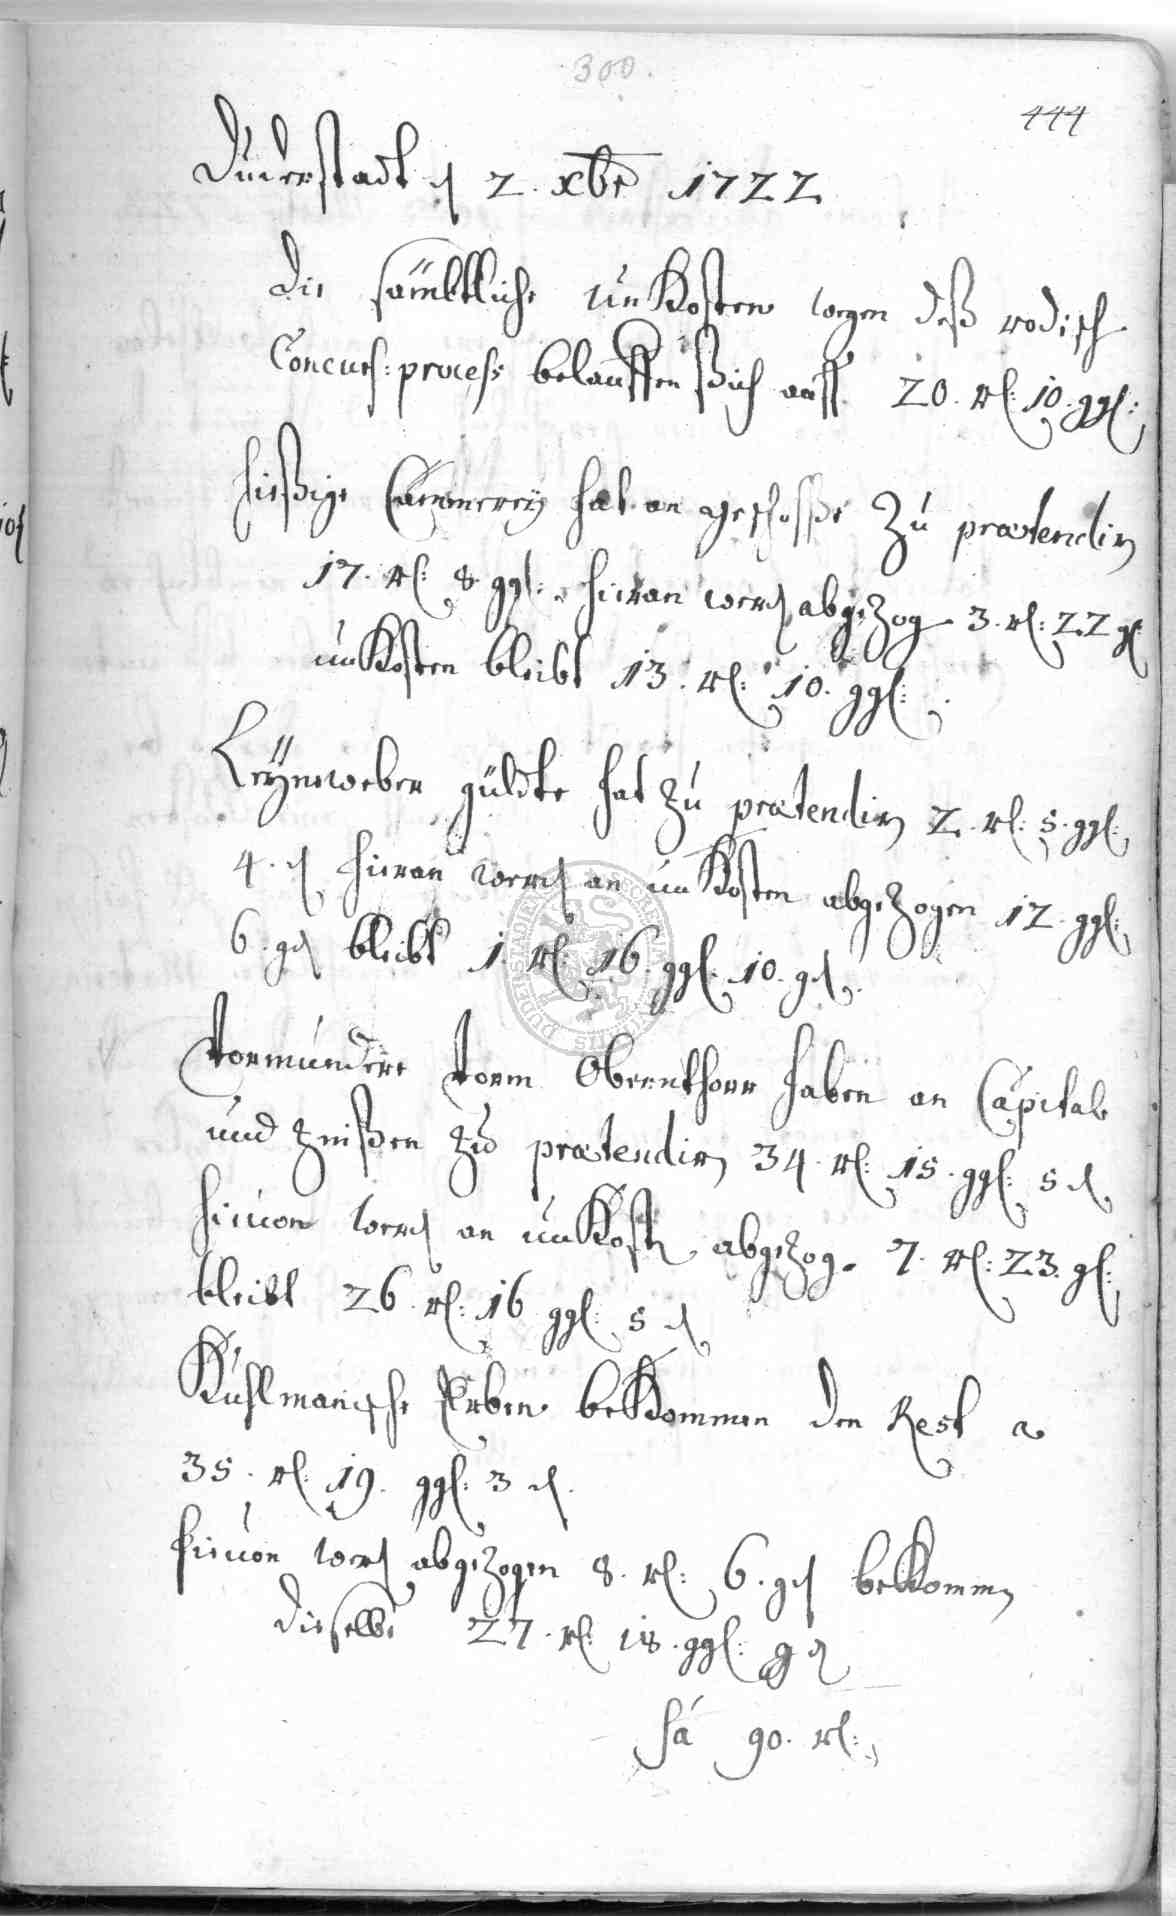 300.
444
Duderstadt d 2. xbr 1722
Die sämbtliche unKosten wegen deß rodisch
Concurs: process belauffen ßich auff 20. rl: 10. ggl:
hießige Cämmerey hat an geschosse Zu prætendirn
17. rl: 8 ggl: hieran werd abgeZog. 3. rl: 22 gl
unKosten bleibt 13. rl: 10. ggl:
Leyneweber güldte hat zu prætendirn 2. rl: 5. ggl:
4. d hieran werd an unKosten abgeZogen 12. ggl:
6. gd bleibt 1. rl: 16. ggl: 10. gd.
Vormündere Vorm Obernthorr haben an Capital
und Zinßen Zu prætendirn 34. rl: 15. ggl: 5 d
hiuon werd an unKostn abgeZog. 7. rl: 23. gl:
bleibt 26. rl: 16 ggl: 5 d
Kuhlmanische Erben beKommen den Rest a
35. rl: 19. ggl: 3 d.
hieuon werd abgeZogen 8. rl: 6. gd beKommen
dieselbe 27. rl: 18. ggl: 9 d
Sa 90. rl:
DUDERSTADIENSIS SECRETVM CIVITATIS